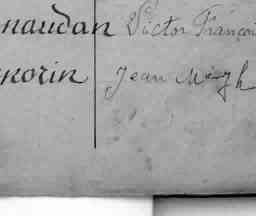 naudan Victor Françoi
norin Jean Me